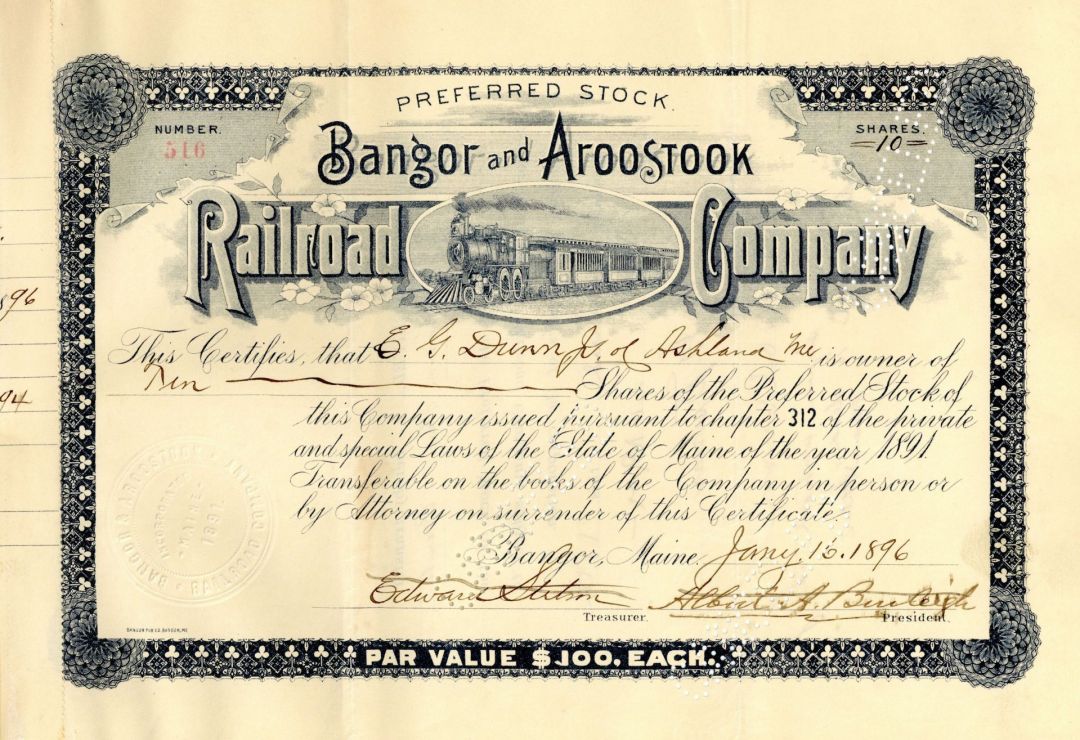 PREFERRED STOCK.
NUMBER.
516
SHARES.
=10=
Bangor and Aroostook
Railroad Company
This Certifies, that E. G. Dunn Jr. of Ashland Me is owner of
Ten Shares of the Preferred Stock of
this Company issued pursuant to chapter 312 of the private
and special Laws of the State of Maine of the year 1891
Transferable on the books of the Company in person or
by Attorney on surrender of this Certificate.
Bangor, Maine, Jany. 15. 1896
Edward Stetson Albert A. Burleigh
Treasurer. President.
BANGOR & AROOSTOOK RAILROAD COMPANY
INCORPORATED
MAINE
1891
BANGOR PUB CO. BANGOR, ME.
PAR VALUE $100. EACH.
896
94